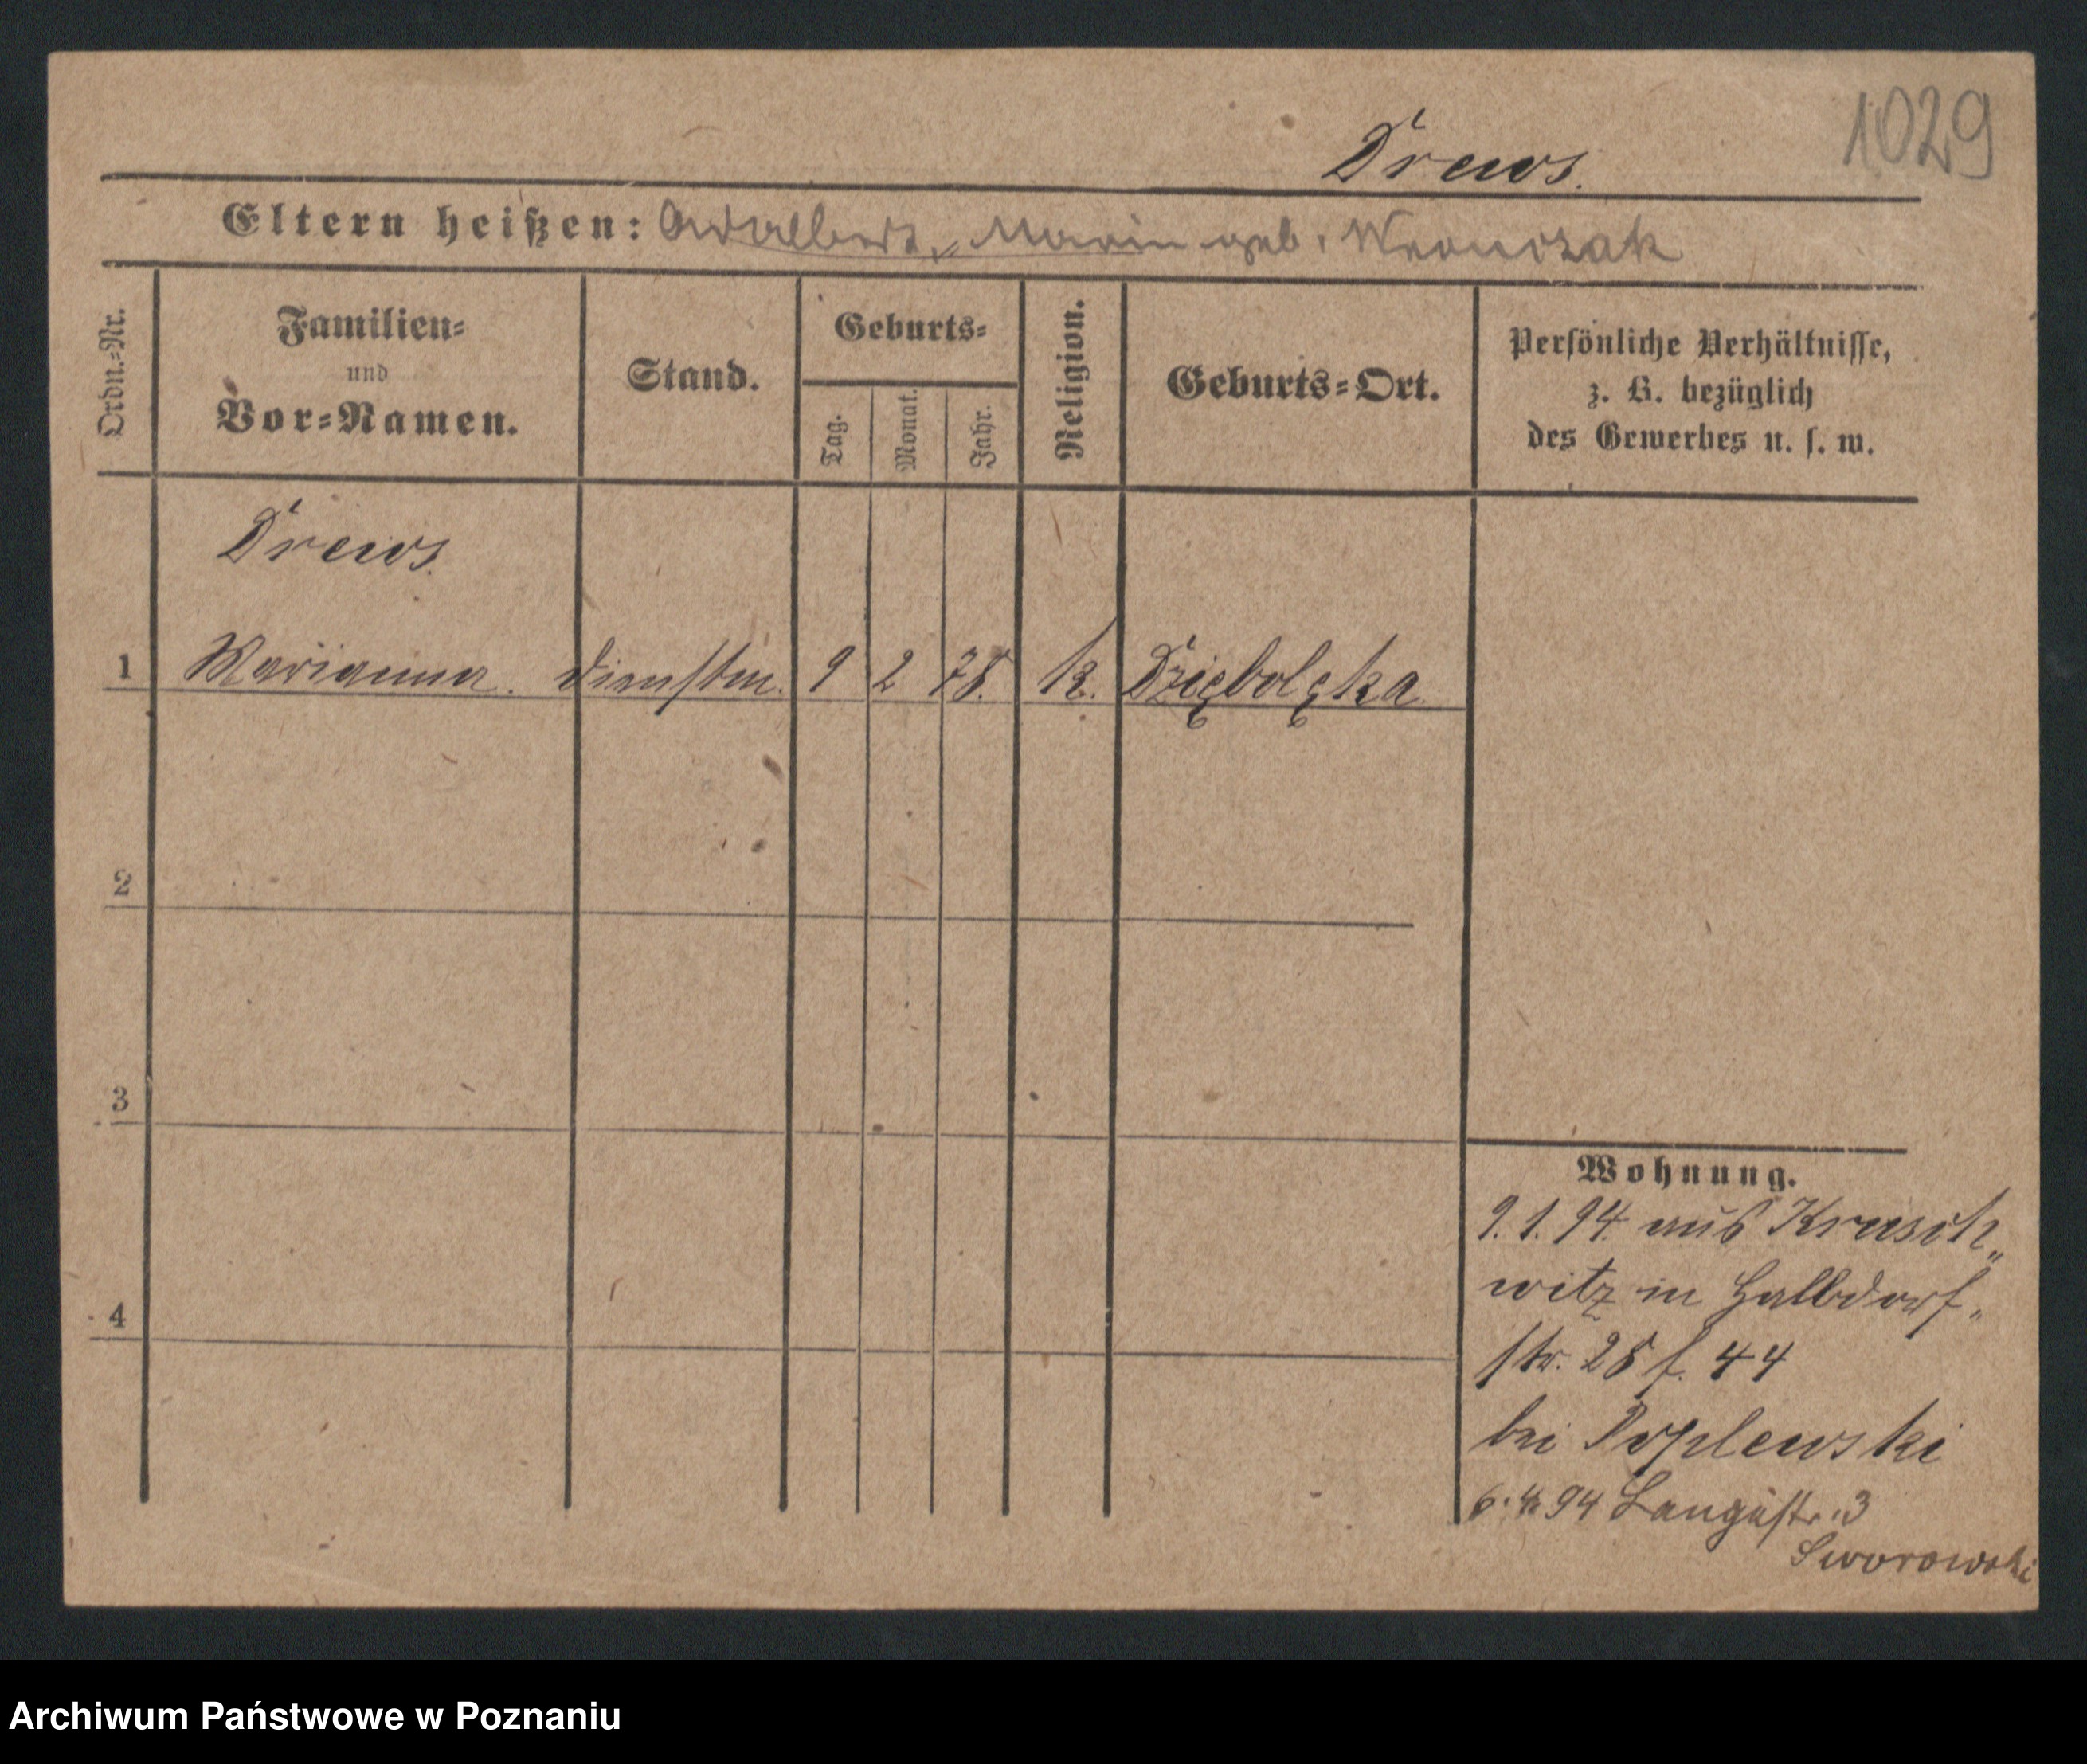 1029
Drews.
Eltern heißen: Adalbert, Marie geb. Wronczak
Ordn.=Nr.
Familien=
und
Vor=Namen.
Stand.
Geburts=
Tag.
Monat.
Jahr.
Religion.
Geburts=Ort.
Persönliche Verhältnisse,
z. B. bezüglich
des Gewerbes u. s. w.
Drews.
1 Marianna. Dienstm. 9 2 78. k. Dziębolęka
2
3
4
Wohnung.
9.1.94 aus Krusch„
witz in Halbdorf„
str. 28 f. 44
bei Poplewski
6.4.94 Langestr. 3
Sworowski
Archiwum Państwowe w Poznaniu